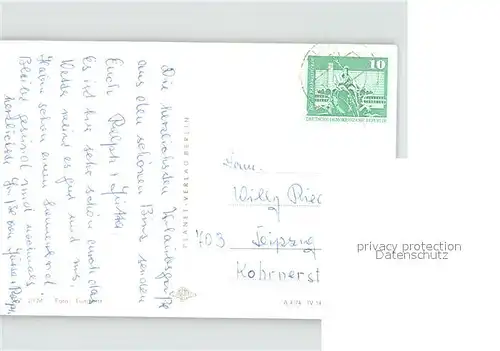 Die herzlichsten Urlaubsgrüße
aus dem schönen Binz senden
Euch Ralph + Jutta.
Es ist hier sehr schön auch das
Wetter meint es gut mit uns.
Haben schon einen Sonnenbrand.
Bleibt gesund und nochmals
herzlichste Grüße von Jutta + Ralph
PLANET-VERLAG BERLIN
10
DEUTSCHE DEMOKRATISCHE REPUBLIK
Fam.
Willy
703 Leipzig
Kohrnerst
Foto:
privacy protection
Datenschutz